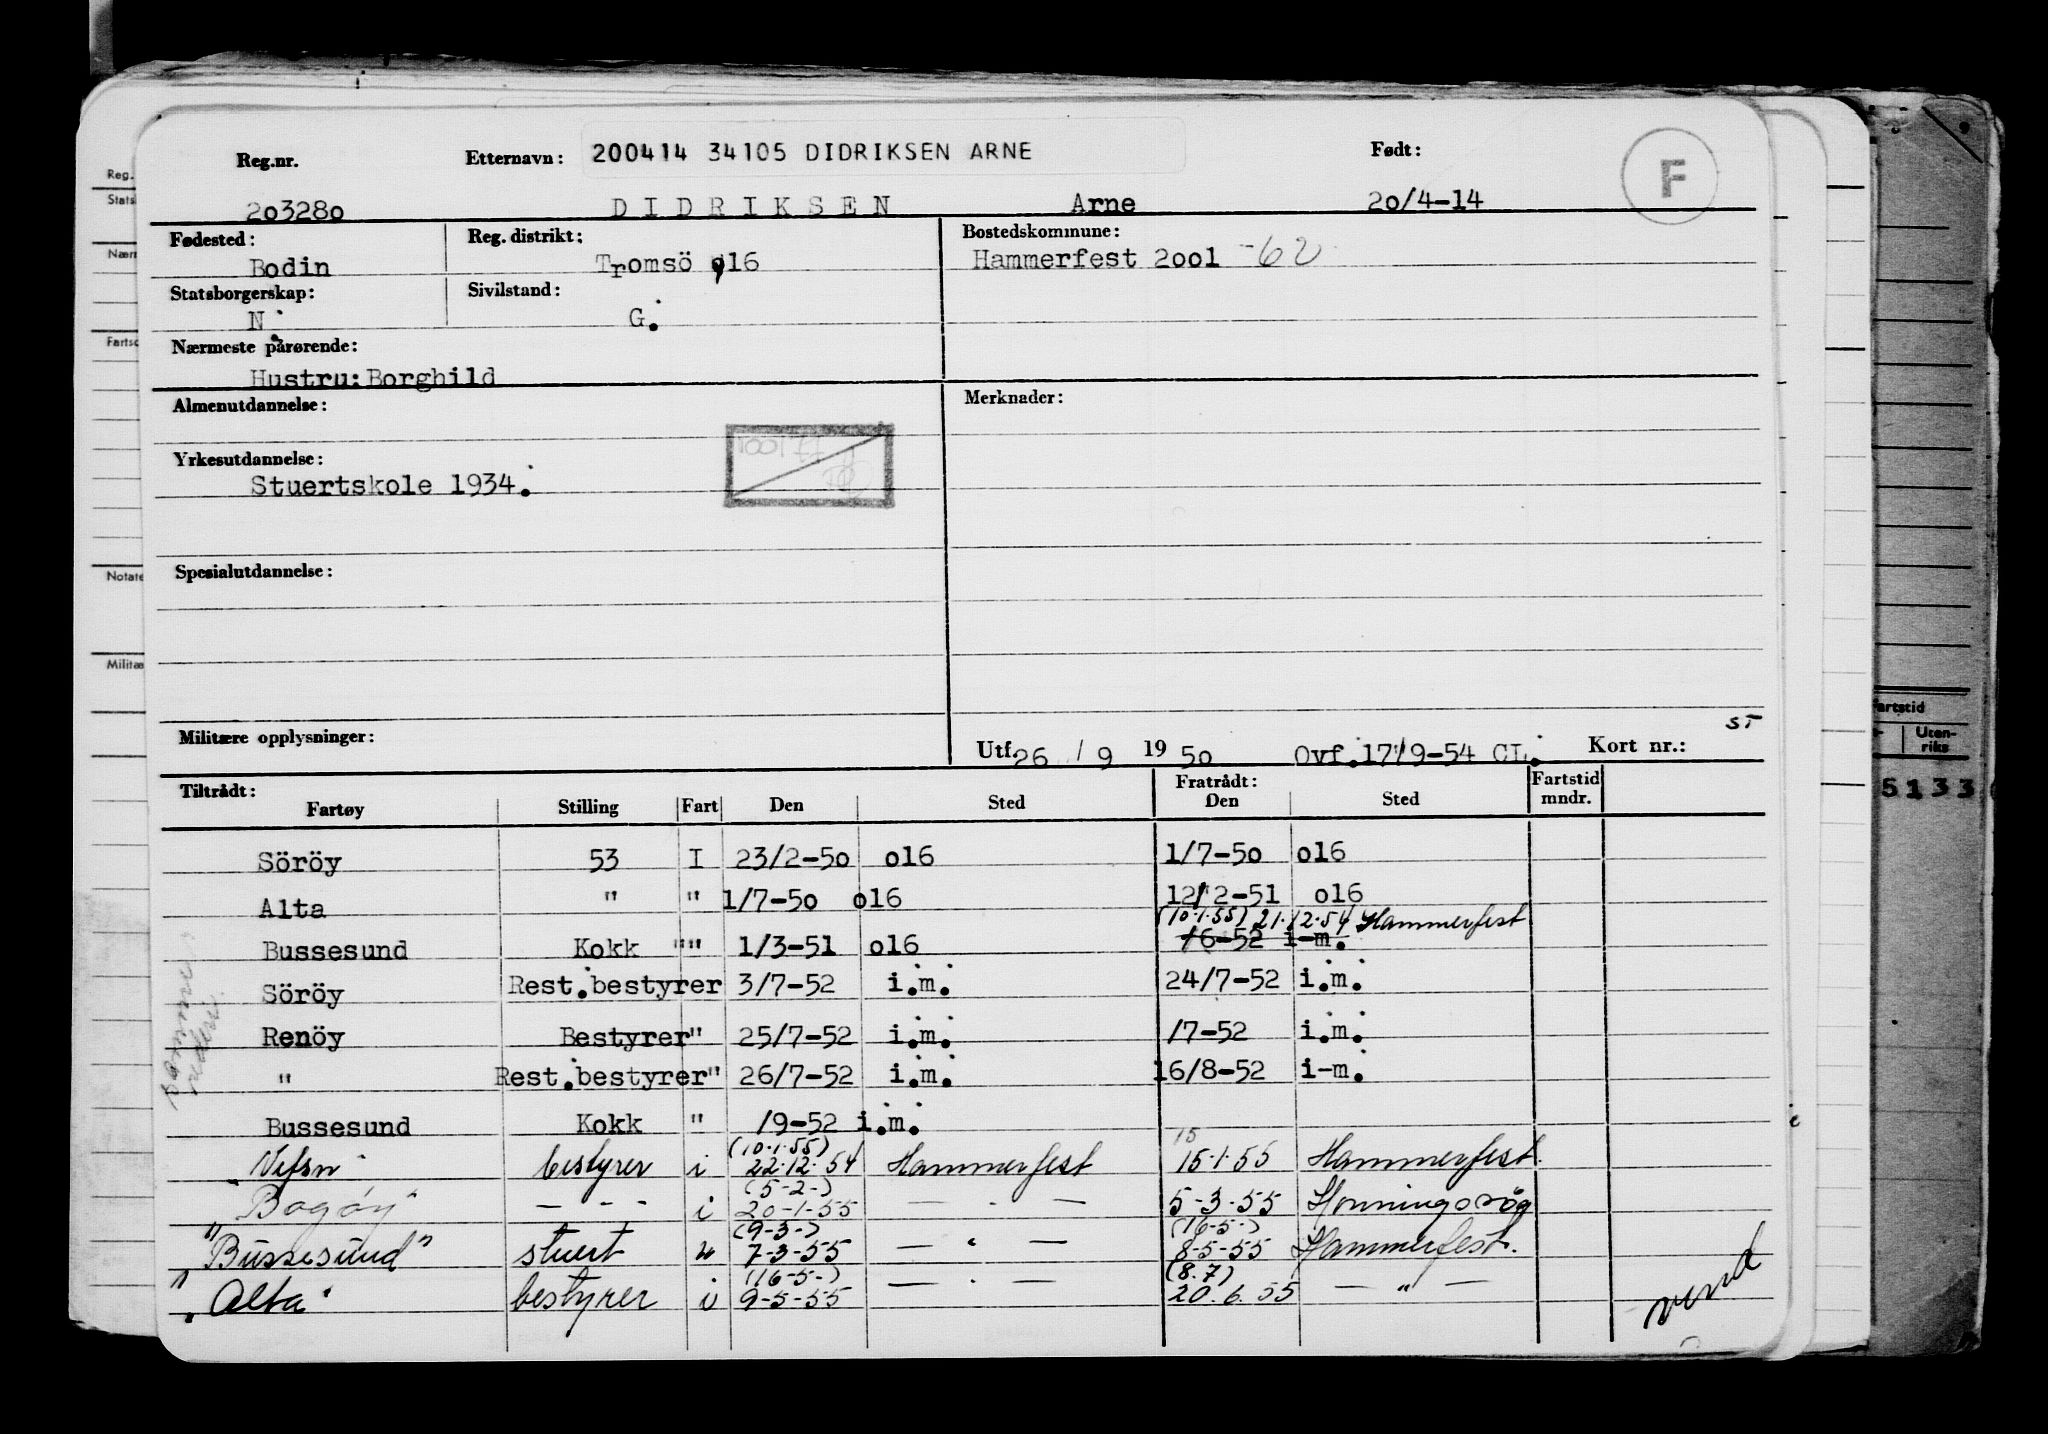 Reg.nr. Etternavn: 200414 34105 DIDRIKSEN ARNE Født: F
203280 DIDRIKSEN Arne 20/4-14
Fødested: Reg. distrikt: Bostedskommune:
Bodin Tromsö o16 Hammerfest 2001 -62
Statsborgerskap: Sivilstand:
N. G.
Nærmeste pårørende:
Hustru: Borghild
Almenutdannelse: Merknader:
Yrkesutdannelse:
Stuertskole 1934.
Spesialutdannelse:
ST
Militære opplysninger: Utf. 26 / 9 19 50 Ovf. 17/9-54 CL. Kort nr.:
Tiltrådt: Fratrådt: Fartstid
Fartøy Stilling Fart Den Sted Den Sted mndr.
Söröy 53 I 23/2-50 o16 1/7-50 o16
Alta " " 1/7-50 o16 12/2-51 o16
(10.1.55) 21.12.54 Hammerfest
Bussesund Kokk "" 1/3-51 o16 /6-52 i-m.
Söröy Rest.bestyrer 3/7-52 i.m. 24/7-52 i.m.
Renöy Bestyrer" 25/7-52 i.m. /7-52 i.m.
" Rest.bestyrer" 26/7-52 i.m. 16/8-52 i-m.
Bussesund Kokk " /9-52 i.m.
(10.1.55) 15
Vefsn bestyrer i 22.12.54 Hammerfest 15.1.55 Hammerfest.
(5-2-)
"Bogöy" - - - i 20-1-55 — - — 5-3-55 Honningsvåg
(9-3-) (16-5-)
"Bussesund" stuert " 7-3-55 — " — 8-5-55 Hammerfest.
(16-5-) (8.7)
"Alta" bestyrer i 9-5-55 — - — 20.6.55 — " —
vend
samme
rederi.
Reg.
Stats
Nærm
Fartsc
Notate
Militæ
artstid
Uten-
riks
5133